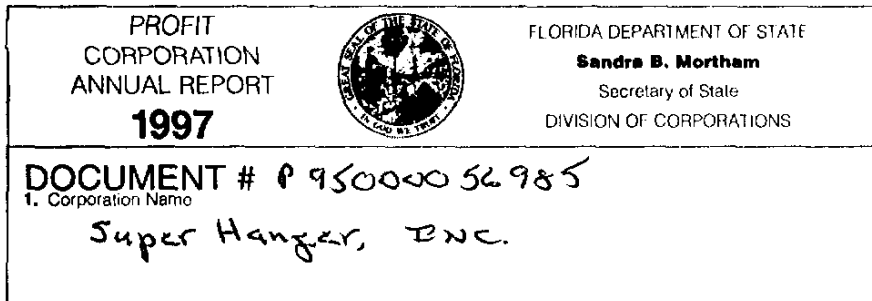 PROFIT
CORPORATION
ANNUAL REPORT
1997
GREAT SEAL OF THE STATE OF FLORIDA
IN GOD WE TRUST
FLORIDA DEPARTMENT OF STATE
Sandra B. Mortham
Secretary of State
DIVISION OF CORPORATIONS
DOCUMENT # P95000056985
1. Corporation Name
Super Hanger, INC.